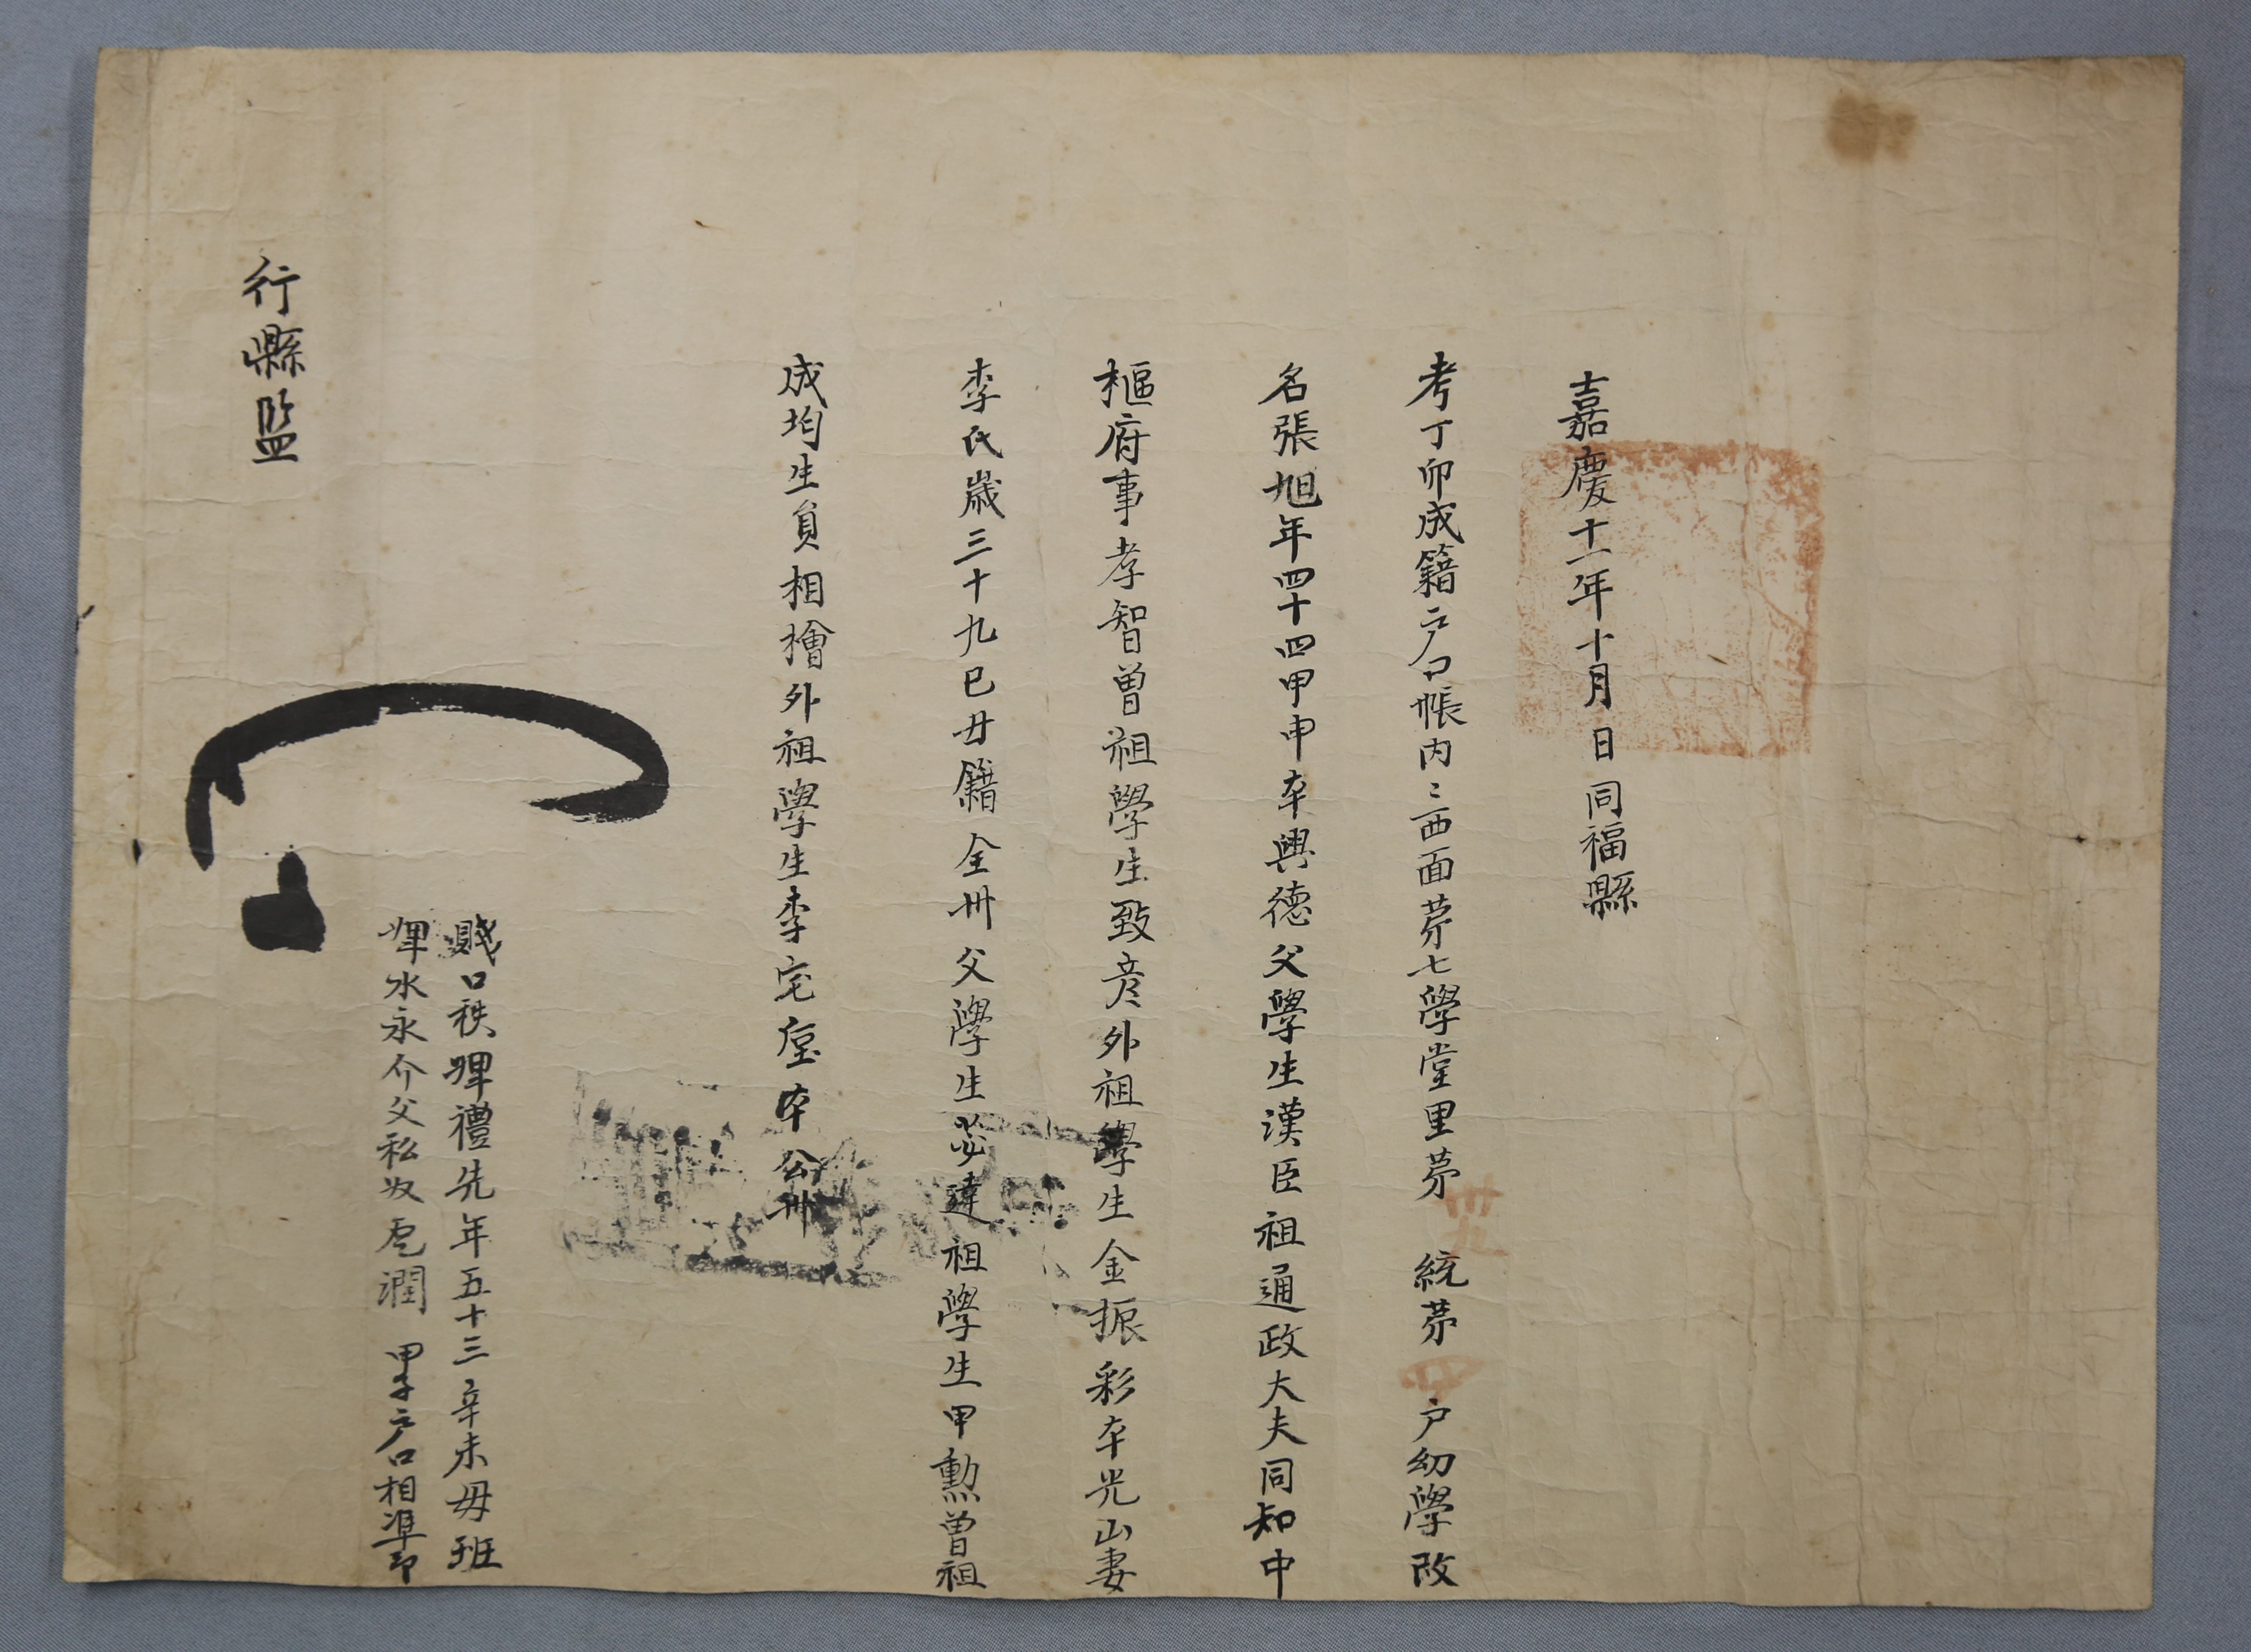 嘉慶十一年十月 日同福縣
考丁卯成籍户口帳內〻西面苐七學堂里苐卅九統苐四户幼學改
名張旭年四十四甲申本興德父學生漢臣祖通政大夫同知中
樞府事孝智曽祖學生致彦外祖學生金振彩本光山妻
李氏歲三十九己丑籍全州父學生必達祖學生甲勲曽祖
成均生員相檜外祖學生李宅垕本公州
賤口秩婢禮先年五十三辛未母班
婢水永介父私奴卮潤 甲子户口相凖印
行縣監